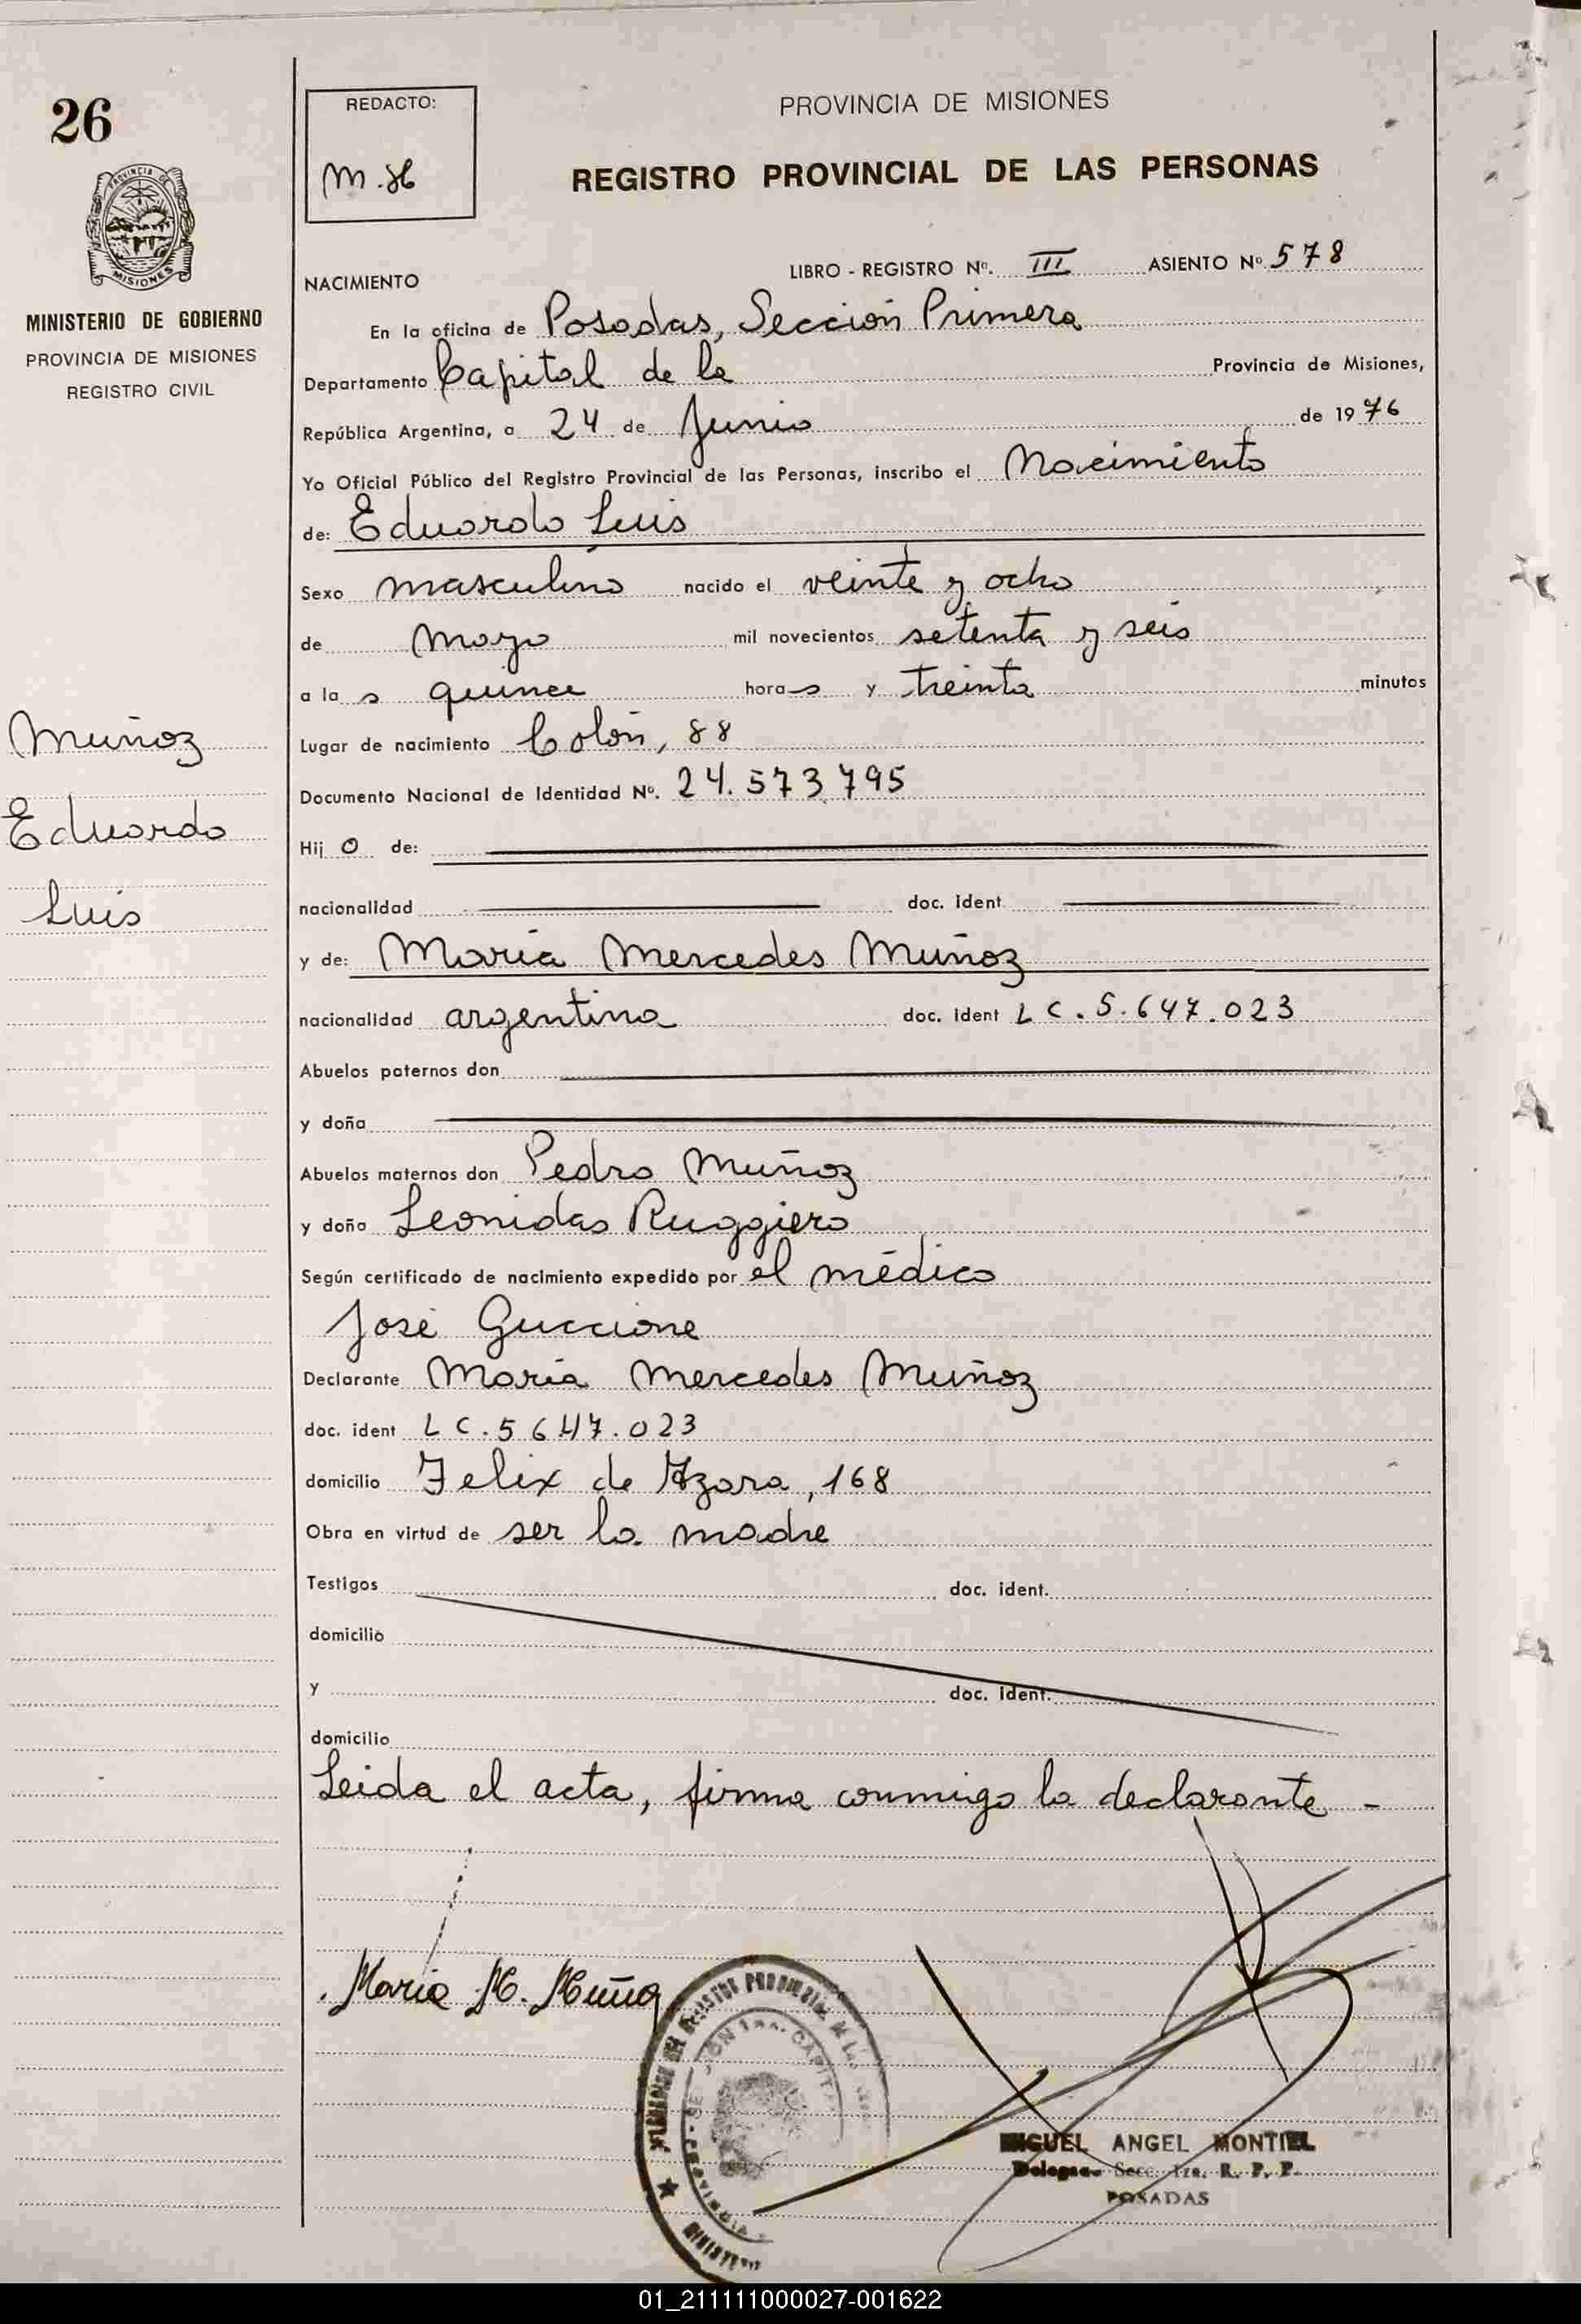 26
PROVINCIA DE
MISIONES
MINISTERIO DE GOBIERNO
PROVINCIA DE MISIONES
REGISTRO CIVIL
Muñoz
Eduardo
Luis
REDACTO:
PROVINCIA DE MISIONES
REGISTRO PROVINCIAL DE LAS PERSONAS
NACIMIENTO LIBRO - REGISTRO Nº. III ASIENTO Nº 578
En la oficina de Posadas, Sección Primera
Departamento Capital de la Provincia de Misiones,
República Argentina, a 24 de Junio de 1976
Yo Oficial Público del Registro Provincial de las Personas, inscribo el Nacimiento
de: Eduardo Luis
Sexo masculino nacido el veinte y ocho
de Mayo mil novecientos setenta y seis
a la s quince hora s y treinta minutos
Lugar de nacimiento Colón, 88
Documento Nacional de Identidad Nº. 24.573.795
Hij o de:
nacionalidad doc. ident
y de: María Mercedes Muñoz
nacionalidad argentina doc. ident L C. 5.647.023
Abuelos paternos don
y doña
Abuelos maternos don Pedro Muñoz
y doña Leonidas Ruggiero
Según certificado de nacimiento expedido por el médico
José Guccione
Declarante María Mercedes Muñoz
doc. ident L C. 5 647.023
domicilio Felix de Azara, 168
Obra en virtud de ser la madre
Testigos doc. ident.
domicilio
y doc. ident.
domicilio
Leida el acta, firma conmigo la declarante -
Maria M. Muñoz
MIGUEL ANGEL MONTIEL
Secc. 1ra. R. P. P.
POSADAS
01_211111000027-001622